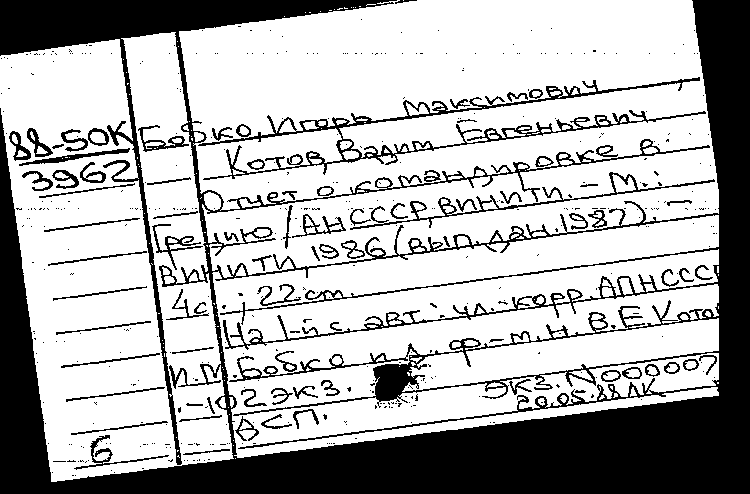 88-50К
3962
Бобко, Игорь Максимович,
Котов, Вадим Евгеньевич
Отчет о командировке в
Грецию / АН СССР, ВИНИТИ. – М.:
ВИНИТИ, 1986 (вып. дан. 1987). –
4 с.; 22 см.
На 1-й с. авт.: чл.-корр. АПН СССР
И.М. Бобко и д. ф.-м. н. В.Е. Кото
. – 102 экз.
Экз. N000007
ВСП.
20.05.88 ЛК
6